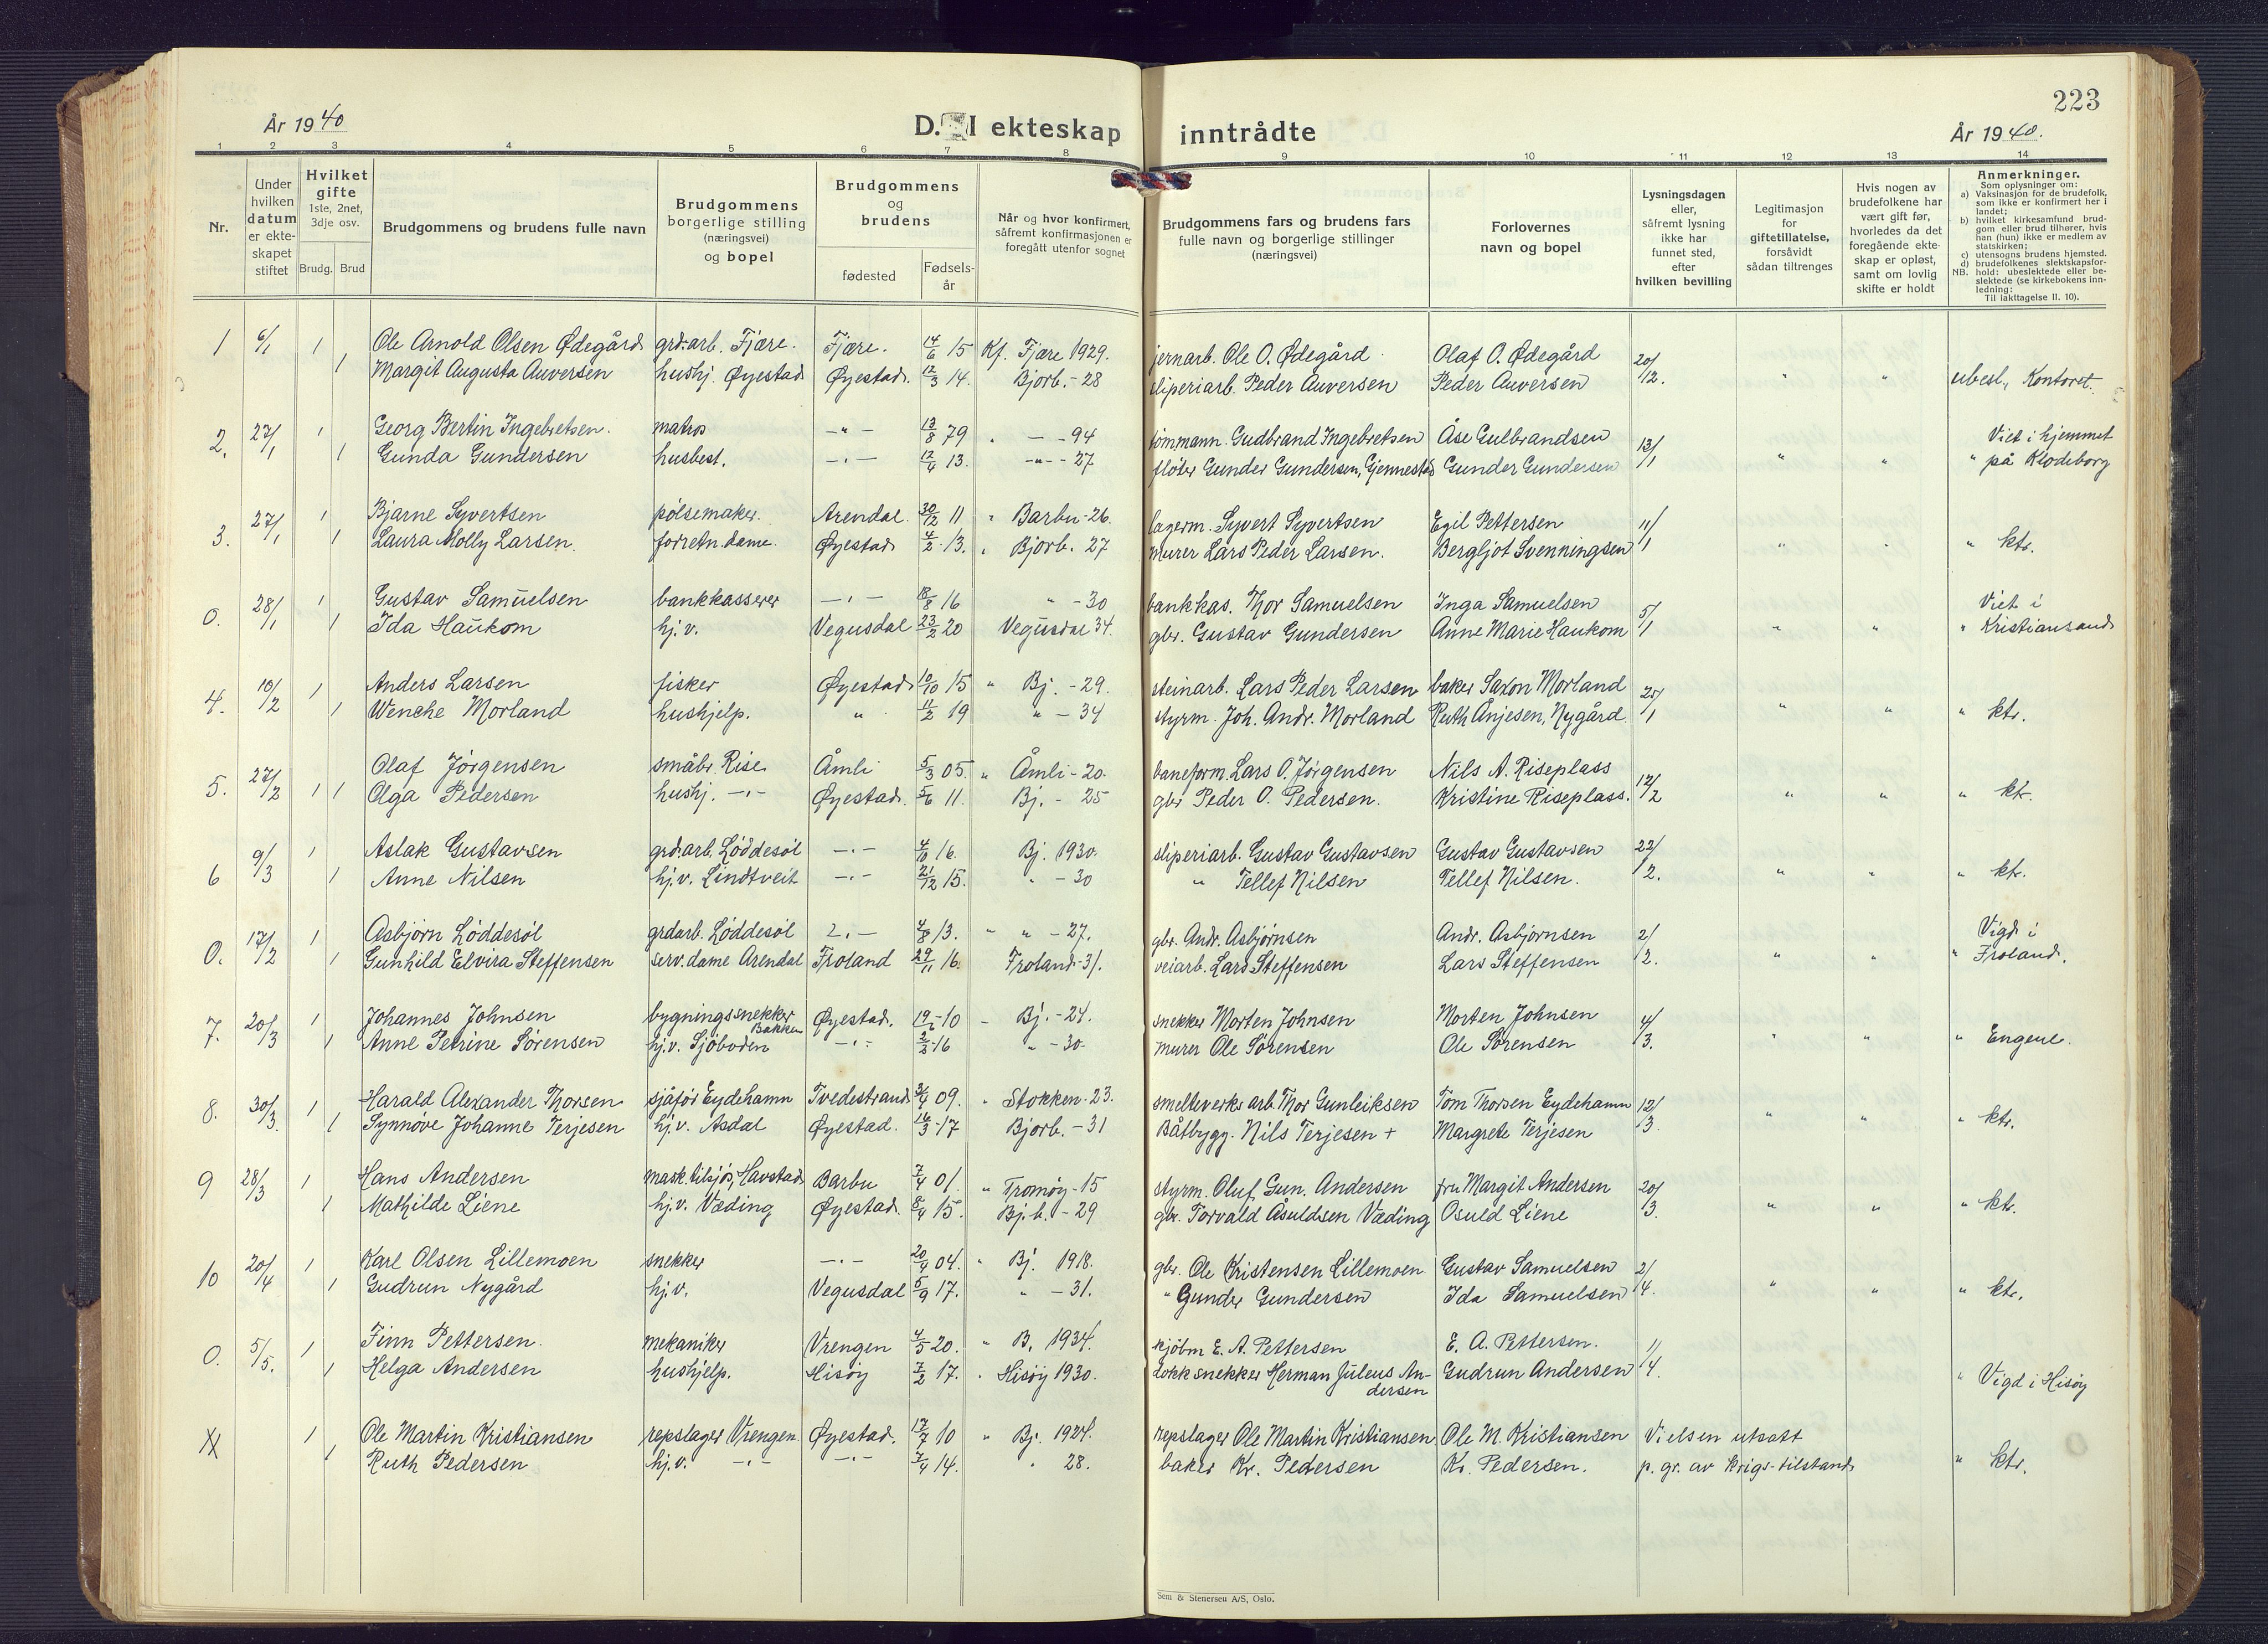 223
År 1940
D. I ekteskap inntrådte
År 1940.
1 2 3 4 5 6 7 8 9 10 11 12 13 14
Nr.
Under hvilken datum er ekte-skapet stiftet
Hvilket gifte
1ste, 2net, 3dje osv.
Brudg. Brud
Brudgommens og brudens fulle navn
Brudgommens borgerlige stilling (næringsvei) og bopel
Brudgommens og brudens
fødested
Fødsels-år
Når og hvor konfirmert, såfremt konfirmasjonen er foregått utenfor sognet
Brudgommens fars og brudens fars fulle navn og borgerlige stillinger (næringsvei)
Forlovernes navn og bopel
Lysningsdagen eller, såfremt lysning ikke har funnet sted, efter hvilken bevilling
Legitimasjon for giftetillatelse, forsåvidt sådan tiltrenges
Hvis nogen av brudefolkene har vært gift før, hvorledes da det foregående ekte-skap er opløst, samt om lovlig skifte er holdt
Anmerkninger.
Som oplysninger om:
a) Vaksinasjon for de brudefolk, som ikke er konfirmert her i landet;
b) hvilket kirkesamfund brud-gom eller brud tilhører, hvis han (hun) ikke er medlem av statskirken;
c) utensogns brudens hjemsted.
d) brudefolkenes slektskapsfor-hold: ubeslektede eller be-slektede (se kirkebokens inn-ledning:
NB. Til iakttagelse II. 10).
1 6/1 1 Ole Arnold Olsen Ødegård grd.arb. Fjære. Fjære. 14/6 15 Kf. Fjære 1929. jernarb. Ole O. Ødegård Olaf O. Ødegård 20/12.
1 Margit Augusta Auversen hushj. Øyestad Øyestad. 12/3 14. Bjorb. - 28 sliperiarb. Peder Auversen Peder Auversen " " ubesl., Kontoret.
2. 27/1 1 Georg Bertin Ingebretsen. matros - " - 13/8 79 " - - 94 tømmann. Gudbrand Ingebretsen Åse Gulbrandsen 13/1 Viet i hjemmet
1 Gunda Gundersen husbest. - " - 12/4 13. - " - 27 fløter Gunder Gundersen, Gjennestad Gunder Gundersen " " " på Klodeborg
3. 27/1 1 Bjarne Syvertsen pølsemaker. Arendal. 30/12 11 " Barbu - 26. lagerm. Syvert Syvertsen Egil Pettersen 11/1
1 Laura Molly Larsen. forretn.dame. Øyestad 4/2 13. " Bjorb. 27 murer Lars Peder Larsen. Bergljot Svenningsen " " " ktr.
0. 28/1 1 Gustav Samuelsen bankkasserer - " - 18/8 16 " - 30 bankkas. Thor Samuelsen Inga Samuelsen 5/1 Viet i
1 Ida Haukom hj.v. Vegusdal 23/2 20 Vegusdal 34. gbr. Gustav Gundersen Anne Marie Haukom " " " Kristiansand
4. 10/2 1 Anders Larsen fisker Øyestad 10/10 15 " Bj. - 29. steinarb. Lars Peder Larsen baker Saxon Morland 25/1
1 Wenche Morland hushjelp. " 11/2 19 " - 34 styrm. Joh. Andr. Morland Ruth Anjesen, Nygård " " " ktr.
5. 27/2 1 Olaf Jörgensen småbr. Rise Åmli 5/3 05. " Åmli - 20. baneform. Lars O. Jörgensen Nils A. Riseplass 12/2
1 Olga Pedersen hushj. - " - Øyestad. 5/6 11. Bj. - 25 gbr Peder O. Pedersen. Kristine Riseplass. " " " ktr.
6 9/3 1 Aslak Gustavsen grd.arb. Løddesøl - " - 4/10 16. Bj. 1930. sliperiarb. Gustav Gustavsen Gustav Gustavsen 22/2.
1 Anne Nilsen hj.v. Lindtveit - " - 21/12 15. " - 30 " Tellef Nilsen Tellef Nilsen. " " " ktr.
0. 17/2 1 Asbjörn Löddesöl grdarb. Löddesöl - " - 4/8 13. " " - 27. gbr. Andr. Asbjörnsen Andr. Asbjörnsen 2/2. Vigd i
1 Gunhild Elvira Steffensen serv.dame Arendal Froland 29/11 16. Froland - 31. veiarb. Lars Steffensen Lars Steffensen " " " Froland.
7. 20/3 1 Johannes Johnsen bygningssnekker Bakken Øyestad. 10 " Bj. - 24. snekker Morten Johnsen Morten Johnsen 4/3.
1 Anne Petrine Sörensen hj.v. Sjöboden - " - 2/2 16 " - 30. murer Ole Sörensen Ole Sörensen " " " Engene.
8. 30/3. 1 Harald Alexander Thorsen sjåför Eydehamn Tvedestrand 09. " Stokken - 23. smelteverks arb. Thor Gunleiksen Tom Thorsen Eydehamn 12/3.
1 Synnöve Johanne Terjesen hj.v. Asdal Øyestad. 16/3 17 Bjorb. - 31 Båtbygg. Nils Terjesen + Margrete Terjesen " " " ktr.
9 28/3 1 Hans Andersen mask.tilsjö, Havstad Barbu 7/4 01. " Tromöy - 15 styrm. Oluf Gun. Andersen fru Margit Andersen 20/3.
1 Mathilde Liene hj.v. Væding Øyestad. 8/4 15. Bj.b. - 29 gbr. Torvald Åsuldsen Væding Osuld Liene " " " ktr.
10 20/4 1 Karl Olsen Lillemoen snekker - " - 20/9 04. " Bj. 1918. gbr. Ole Kristensen Lillemoen Gustav Samuelsen 2/4.
1 Gudrun Nygård hj.v. Vegusdal 5/9 17. " - 31. " Gunder Gundersen Ida Samuelsen " " " ktr.
0. 5/5. 1 Finn Pettersen. mekaniker Vrengen 4/5 20. " B. 1934. kjöbm E. A. Pettersen E. A. Pettersen. 1/4.
1 Helga Andersen hushjelp. Hisöy 7/2 17. " Hisöy 1930. dokksnekker Herman Juleus An-dersen Gudrun Andersen " Vigd i Hisöy
X 1 Ole Martin Kristiansen repslager Vrengen Øyestad. 17/7 10 " Bj. 1924. repslager Ole Martin Kristiansen Ole M. Kristiansen Vielsen utsatt
1 Ruth Pedersen hj.v. - " - - " - 14. " 28. baker Kr. Pedersen Kr. Pedersen. p. gr. av krigs-tilstand " ktr.
Sem & Stenersen A/S, Oslo.